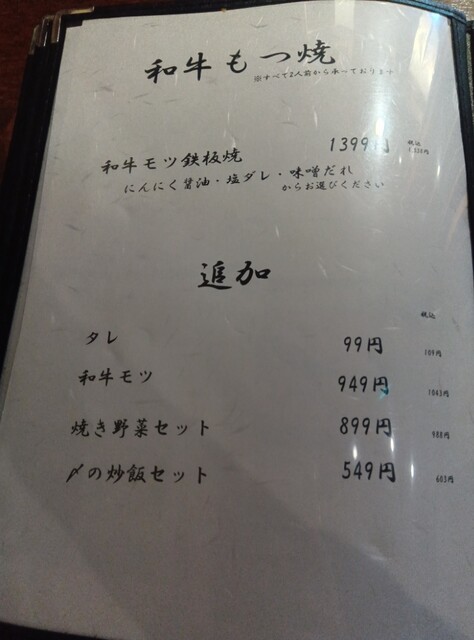 和牛もつ焼
※すべて2人前から承っております
和牛モツ鉄板焼 1399円 税込
にんにく醤油・塩ダレ・味噌だれ
からお選びください
追加
税込
タレ 99円 109円
和牛モツ 949円 1043円
焼き野菜セット 899円 988円
〆の炒飯セット 549円 603円